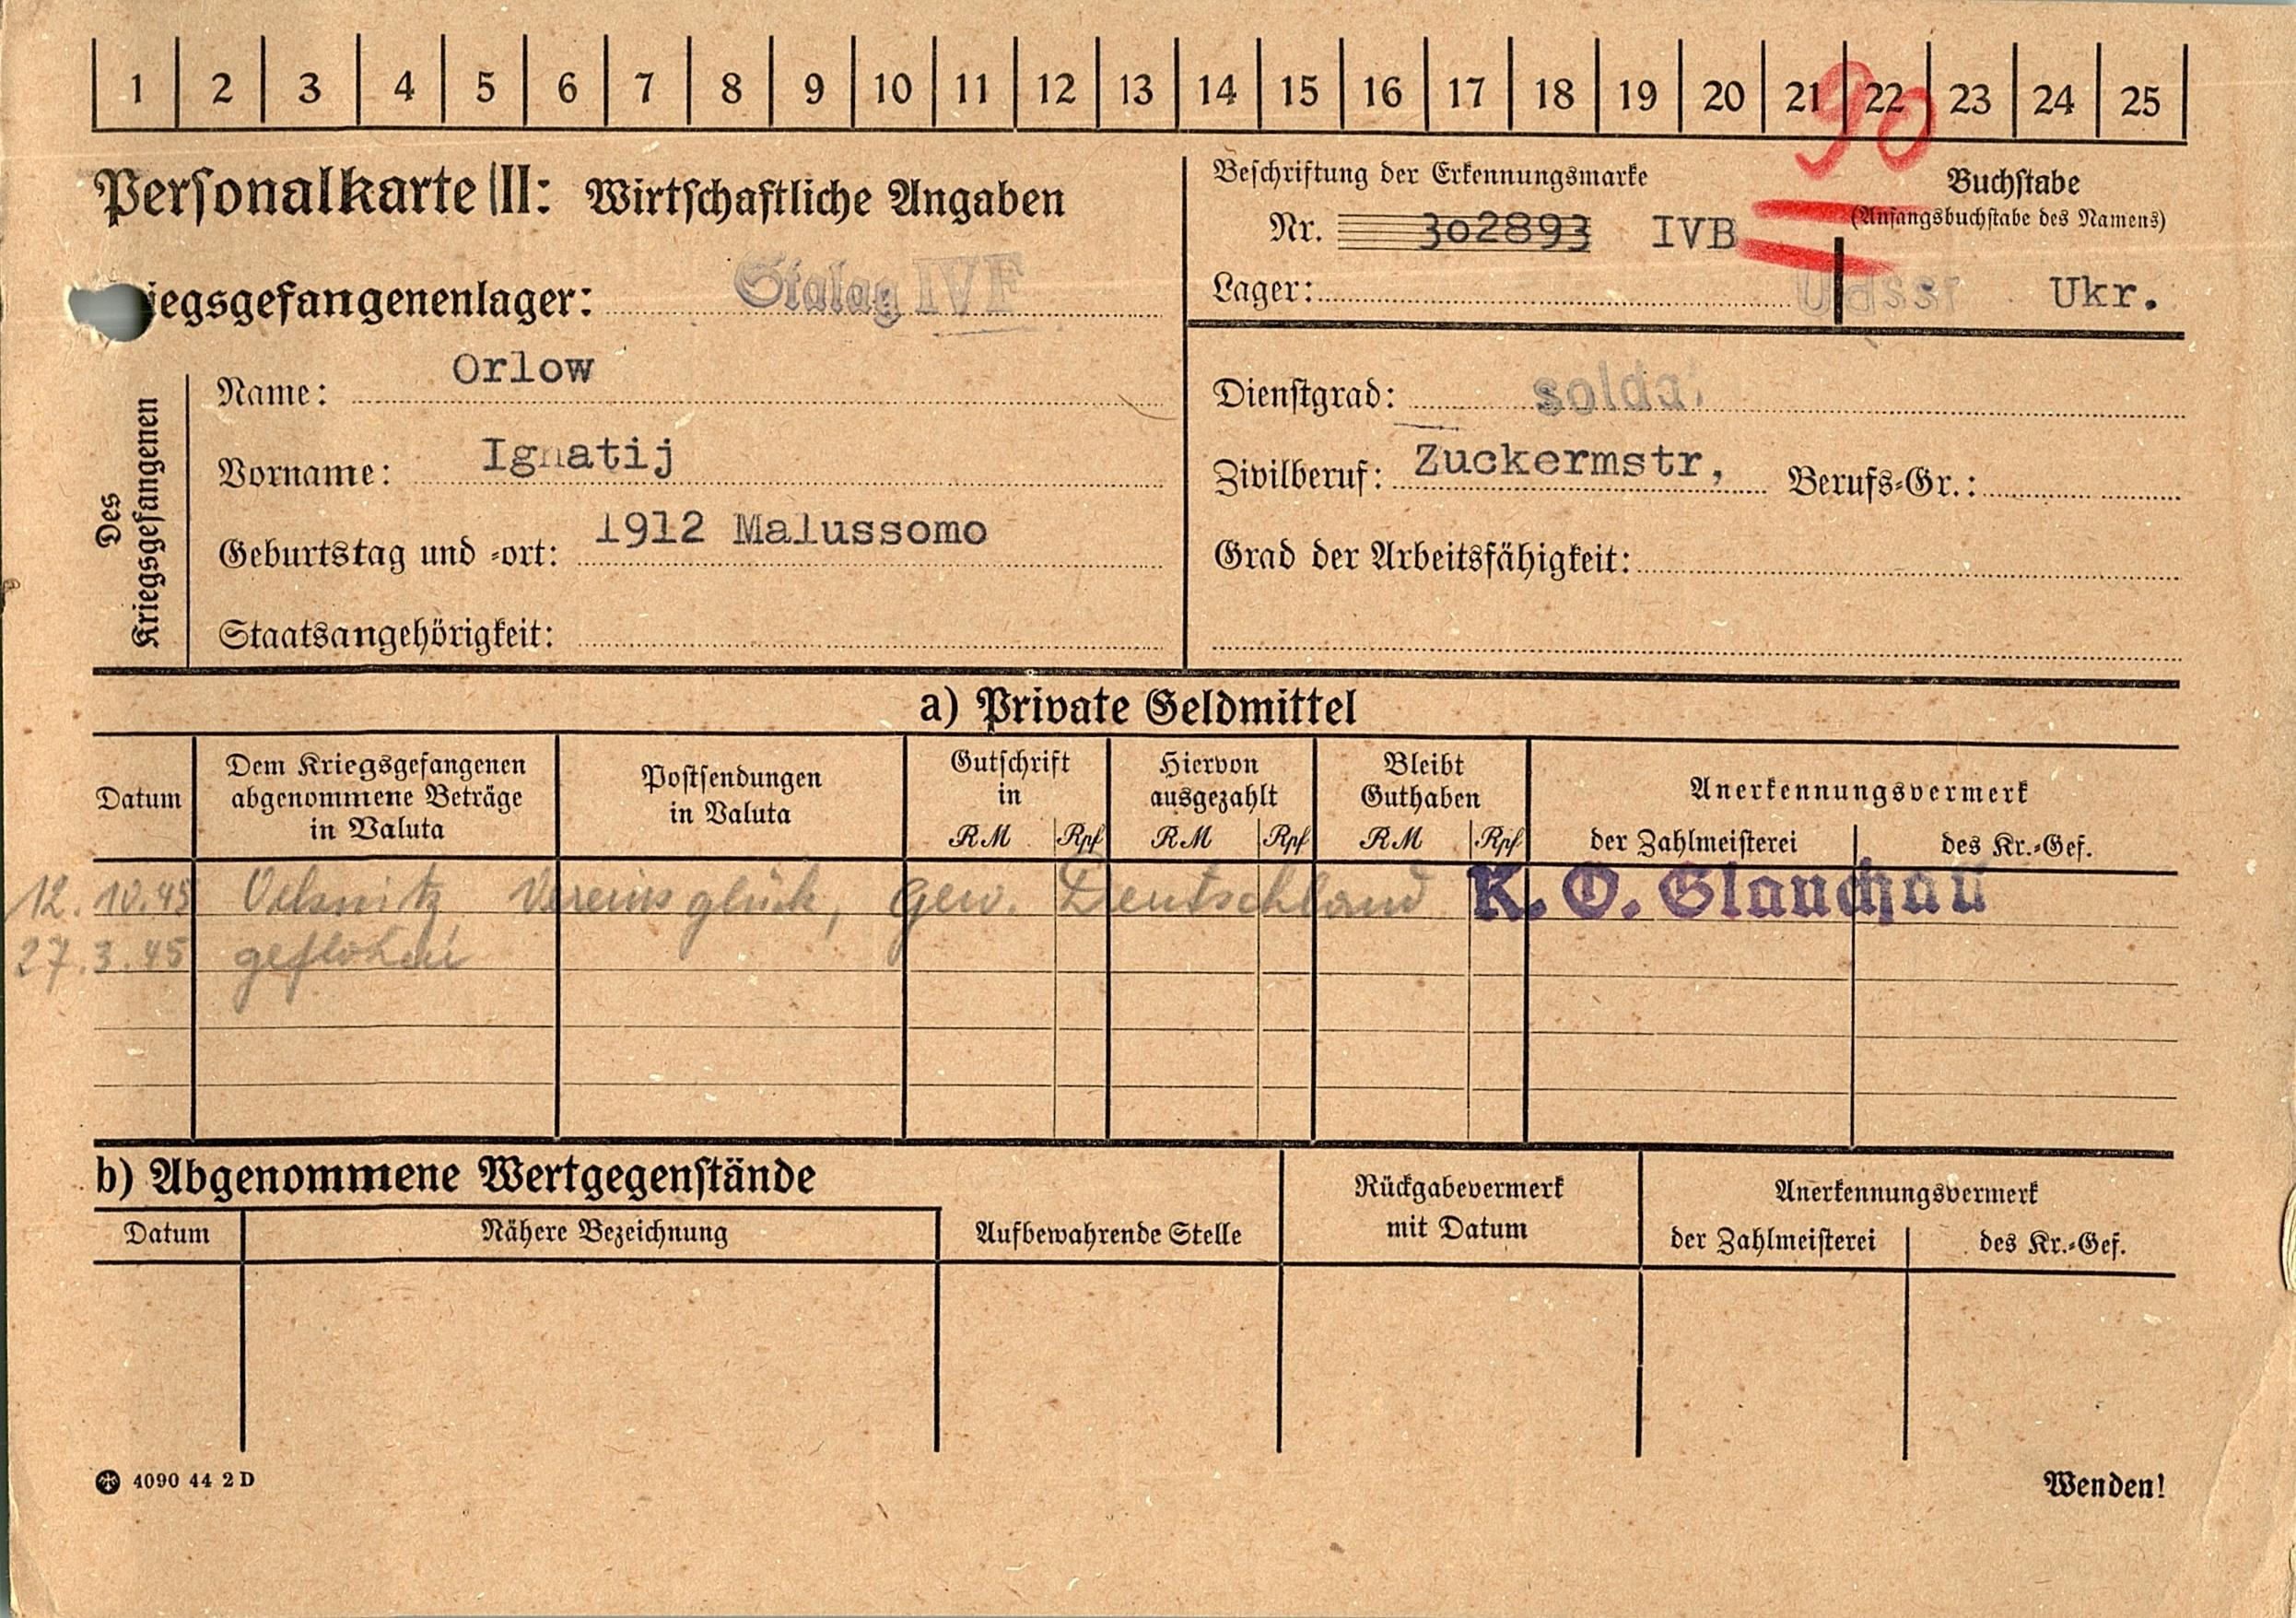 1 2 3 4 5 6 7 8 9 10 11 12 13 14 15 16 17 18 19 20 21 22 23 24 25
90
Personalkarte II: Wirtschaftliche Angaben
Beschriftung der Erkennungsmarke
Nr. 302893 IVB
Lager:
Buchstabe
(Anfangsbuchstabe des Namens)
Udssr Ukr.
iegsgefangenenlager: Stalag IVF
Des Kriegsgefangenen
Name: Orlow
Vorname: Ignatij
Geburtstag und -ort: 1912 Malussomo
Staatsangehörigkeit:
Dienstgrad: solda
Zivilberuf: Zuckermstr, Berufs-Gr.:
Grad der Arbeitsfähigkeit:
a) Private Geldmittel
Datum
Dem Kriegsgefangenen
abgenommene Beträge
in Valuta
Postsendungen
in Valuta
Gutschrift
in
RM Rpf
Hiervon
ausgezahlt
RM Rpf
Bleibt
Guthaben
RM Rpf
Anerkennungsvermerk
der Zahlmeisterei des Kr.-Gef.
12.10.45 Oelsnitz Vereinsglück, Gew. Deutschland K. O. Glauchau
27.3.45 geflohen
b) Abgenommene Wertgegenstände
Datum Nähere Bezeichnung
Aufbewahrende Stelle
Rückgabevermerk
mit Datum
Anerkennungsvermerk
der Zahlmeisterei des Kr.-Gef.
4090 44 2 D
Wenden!